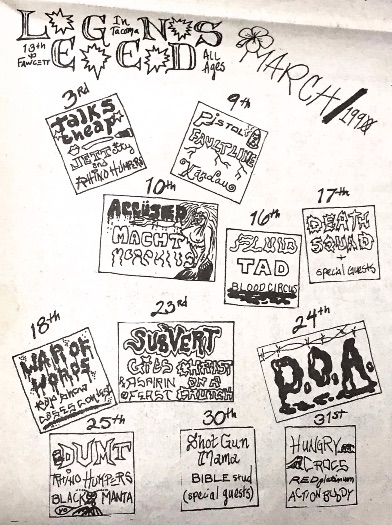 LEGENDS
In Tacoma
13th & FAWCETT
EXEED
All Ages
MARCH/1990
3rd
talks cheap
JETT City
and
RHINO HUMPERS
9th
Pistol
FAULTLINE
10th
ACCUSED
MACHT
MORPHIUS
16th
FLUID
TAD
BLOOD CIRCUS
17th
DEATH
SQUAD
+
special guests
18th
WAR OF
WORDS
23rd
SUBVERT
CHRIST
ASPIRIN ON A
FEAST CRUTCH
24th
P.O.A.
25th
DUMT
RHINO HUMPERS
BLACK MANTA
30th
Shot Gun
Mama
BIBLE stud
(special guests)
31st
HUNGRY
CROCS
RED platinum
ACTION BUDDY